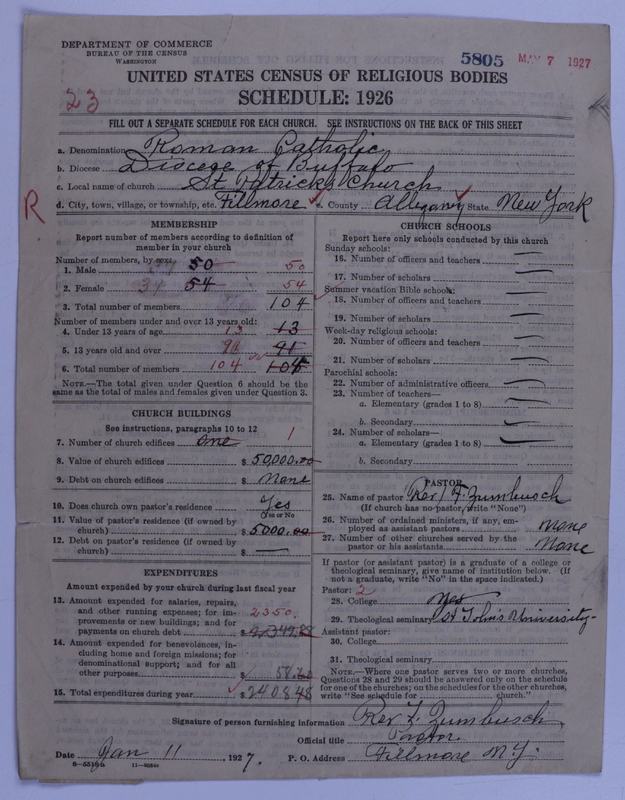 DEPARTMENT OF COMMERCE
BUREAU OF THE CENSUS
WASHINGTON
5805 MAY 7 1927
UNITED STATES CENSUS OF RELIGIOUS BODIES
SCHEDULE: 1926
23
FILL OUT A SEPARATE SCHEDULE FOR EACH CHURCH. SEE INSTRUCTIONS ON THE BACK OF THIS SHEET
a. Denomination Roman Catholic
b. Diocese Diocese of Buffalo
c. Local name of church St Patricks Church
R
d. City, town, village, or township, etc. Fillmore e. County Allegany State New York
MEMBERSHIP
Report number of members according to definition of
member in your church
Number of members, by sex:
1. Male 50 50
2. Female 54 54
3. Total number of members 104
Number of members under and over 13 years old:
4. Under 13 years of age 13 13
5. 13 years old and over 91 91
6. Total number of members 104 104
NOTE.—The total given under Question 6 should be the
same as the total of males and females given under Question 3.
CHURCH BUILDINGS
See instructions, paragraphs 10 to 12
7. Number of church edifices one 1
8. Value of church edifices $ 50,000.00
9. Debt on church edifices $ None
10. Does church own pastor's residence Yes
Yes or No
11. Value of pastor's residence (if owned by
church) $ 5000.00
12. Debt on pastor's residence (if owned by
church) $ —
EXPENDITURES
Amount expended by your church during last fiscal year
13. Amount expended for salaries, repairs,
and other running expenses; for im- 2350
provements or new buildings; and for
payments on church debt $
14. Amount expended for benevolences, in-
cluding home and foreign missions; for
denominational support; and for all
other purposes $ 58
15. Total expenditures during year $ 2408
CHURCH SCHOOLS
Report here only schools conducted by this church
Sunday schools:
16. Number of officers and teachers —
17. Number of scholars —
Summer vacation Bible schools:
18. Number of officers and teachers —
19. Number of scholars —
Week-day religious schools:
20. Number of officers and teachers —
21. Number of scholars —
Parochial schools:
22. Number of administrative officers —
23. Number of teachers—
a. Elementary (grades 1 to 8) —
b. Secondary —
24. Number of scholars—
a. Elementary (grades 1 to 8) —
b. Secondary
PASTOR
25. Name of pastor Rev F. Zumbusch
(If church has no pastor, write "None")
26. Number of ordained ministers, if any, em-
ployed as assistant pastors None
27. Number of other churches served by the
pastor or his assistants None
If pastor (or assistant pastor) is a graduate of a college or
theological seminary, give name of institution below. (If
not a graduate, write "No" in the space indicated.)
Pastor: 2
28. College yes
29. Theological seminary St John's University
Assistant pastor:
30. College
31. Theological seminary
NOTE.—Where one pastor serves two or more churches,
Questions 28 and 29 should be answered only on the schedule
for one of the churches; on the schedules for the other churches,
write "See schedule for church."
Signature of person furnishing information Rev F. Zumbusch
Official title Pastor.
Date Jan 11, 1927. P. O. Address Fillmore N.Y.